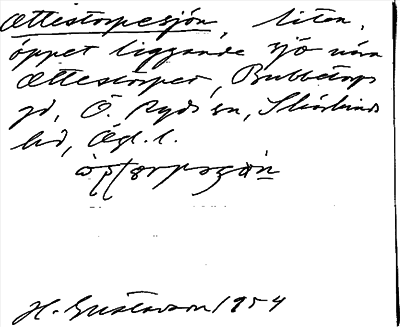 Ættestorpesjön, liten,
öppet liggande sjö nära
Ættestorpet, Bubbetorps
gd, Ö. Ryds sn, Skärkinds
hd, Ögl. l.
H. Gustavson 1954